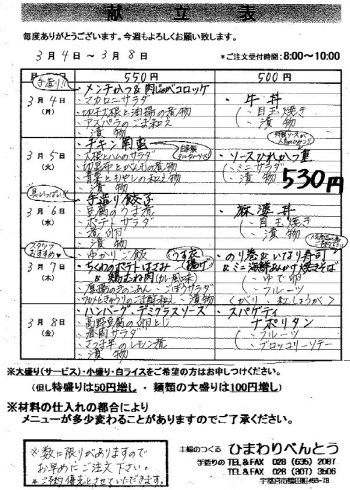 献立表
毎度ありがとうございます。今週もよろしくお願い致します。
3月4日〜3月8日
*ご注文受付時間:8:00〜10:00
550円 500円
手造り!!
メンチかつ&肉じゃがコロッケ
3月4日(月)
・マカロニサラダ
・切干大根と油揚の煮物
・アスパラのごま和え
・漬物
・牛丼
(・目玉焼き
・漬物
チキン南蛮
3月5日(火)
・大根とハムのサラダ
・漬物
・ソースひれかつ重
(・ミニサラダ
・漬物
530円
手造り餃子
3月6日(水)
・豆腐のうま煮
・ポテトサラダ
・漬物
・麻婆丼
(・目玉焼き
・漬物
スタッフおすすめ♥
ゆかりご飯
3月7日(木)
ちくわのポテトはさみ揚げ
・漬物
・のり巻&いなり寿司
&ミニ海鮮あんかけ焼きそば
・ゆで卵
・フルーツ
(がり・紅しょうが)
3月8日(金)
ハンバーグ・デミグラスソース
・高野豆腐の卵とじ
・春雨サラダ
・さつま芋のレモン煮
・漬物
・スパゲティ
ナポリタン
・フルーツ
・ブロッコリーソテー
※大盛り(サービス)・小盛り・白ライスをご希望の方はお申しつけください。
(但し特盛りは50円増し・麺類の大盛りは100円増し)
※材料の仕入れの都合により
メニューが多少変わることがありますのでご了承ください。
※数に限りがありますので
お早めにご注文下さい。
*ご予約優先とさせていただきます。
主婦のつくる
手造りの
ひまわりべんとう
TEL&FAX 028 (635) 2087
TEL&FAX 028 (307) 3506